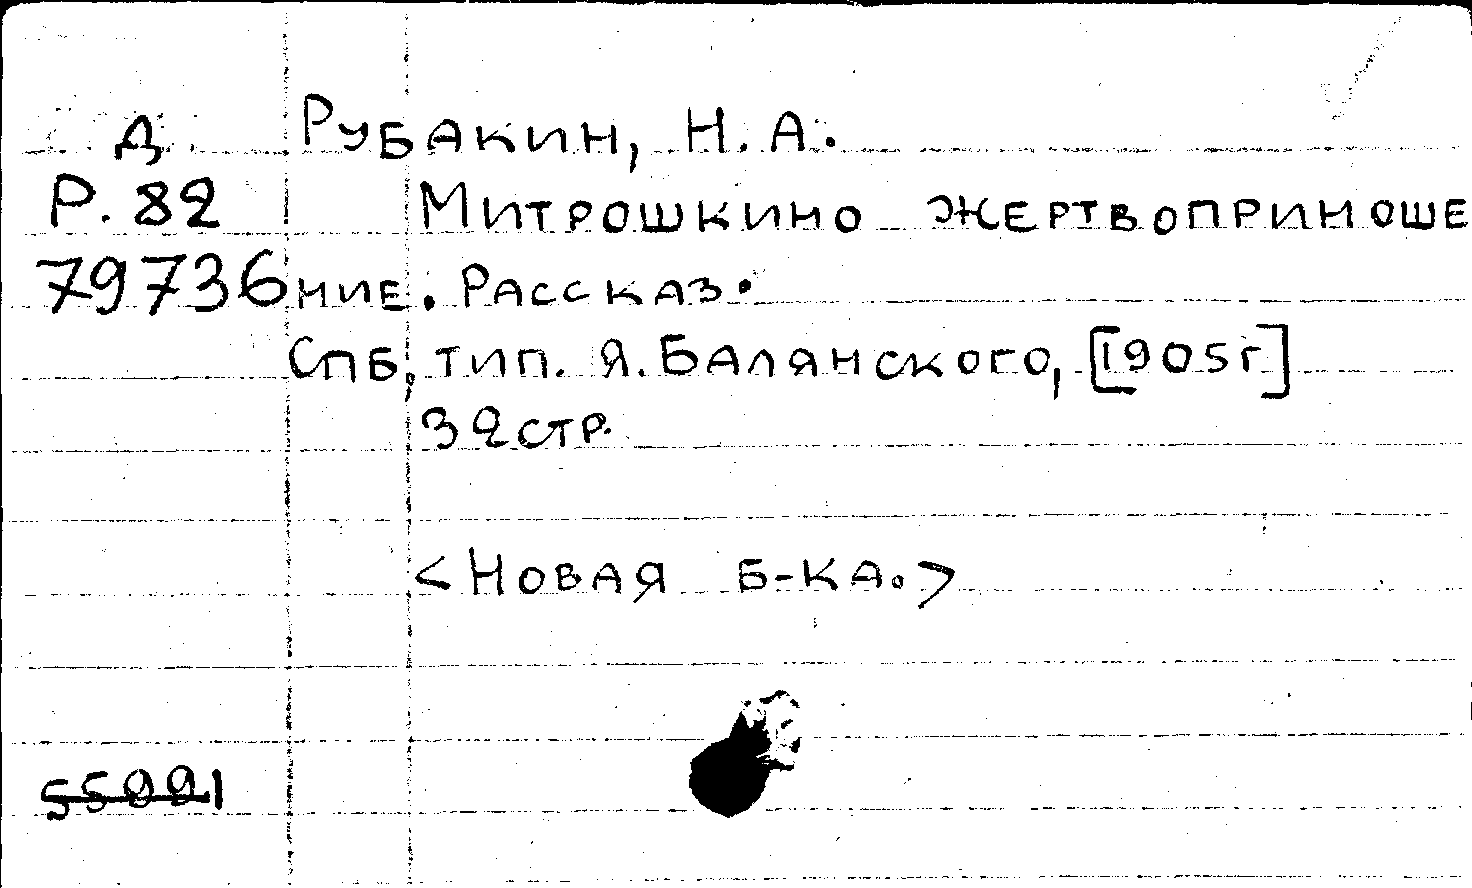 Д Рубакин, Н. А.
Р. 82 Митрошкино жертвоприноше
79736 ние. Рассказ.
Спб, тип. Я. Балянского, [1905г]
32 стр.
<Новая б-ка.>
55991